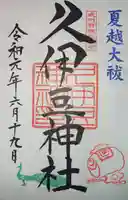 夏越大祓
久伊豆神社
令和六年六月十九日